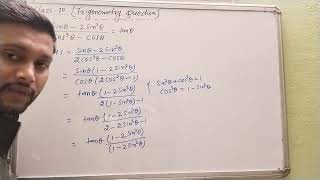 (Trigonometry Question)
sinθ-2sin³θ = tanθ
cos³θ-cosθ
= sinθ-2sin³θ
2cos³θ-cosθ
= sinθ(1-2sin²θ)
cosθ(2cos²θ-1)
= tanθ (1-2sin²θ)
2(1-sin²θ)-1
sin²θ+cos²θ=1
cos²θ=1-sin²θ
= tanθ (1-2sin²θ)
2-2sin²θ-1
= tanθ (1-2sin²θ)
(1-2sin²θ)